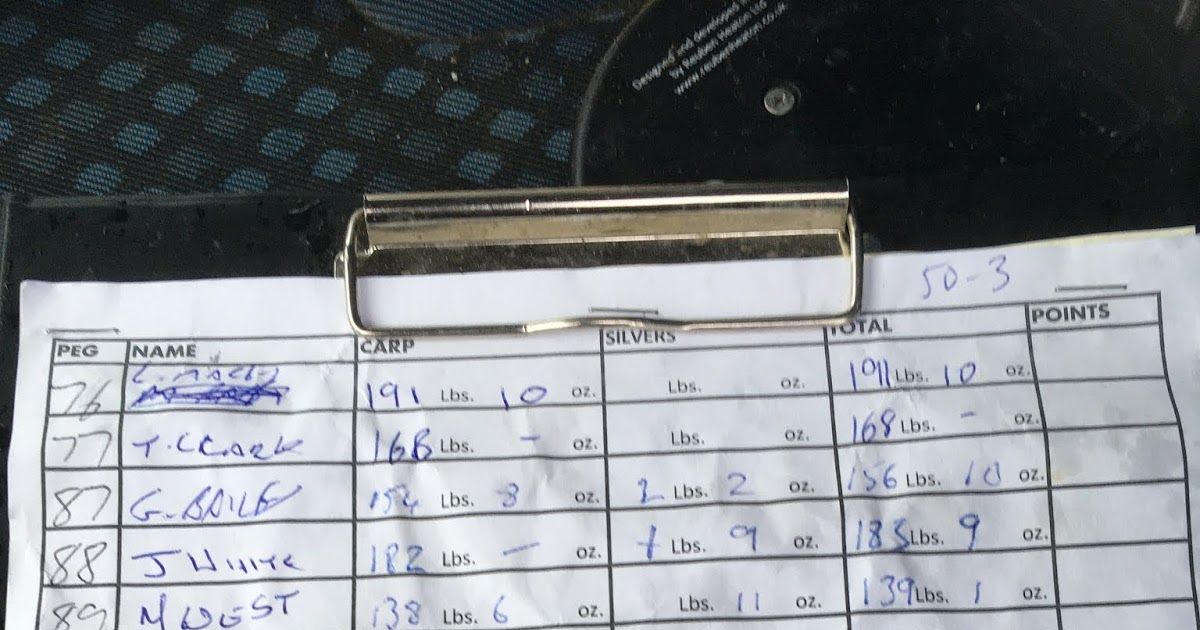 Designed and developed in
by Reuben Heaton Ltd
www.reubenheaton.co.uk
50-3
PEG NAME CARP SILVERS TOTAL POINTS
76 191 Lbs. 10 oz. Lbs. oz. 191 Lbs. 10 oz.
77 T. CLARK 168 Lbs. - oz. Lbs. oz. 168 Lbs. - oz.
87 G. BAILEY 154 Lbs. 8 oz. 2 Lbs. 2 oz. 156 Lbs. 10 oz.
88 J WHITE 182 Lbs. - oz. 1 Lbs. 9 oz. 183 Lbs. 9 oz.
89 M WEST 138 Lbs. 6 oz. Lbs. 11 oz. 139 Lbs. 1 oz.